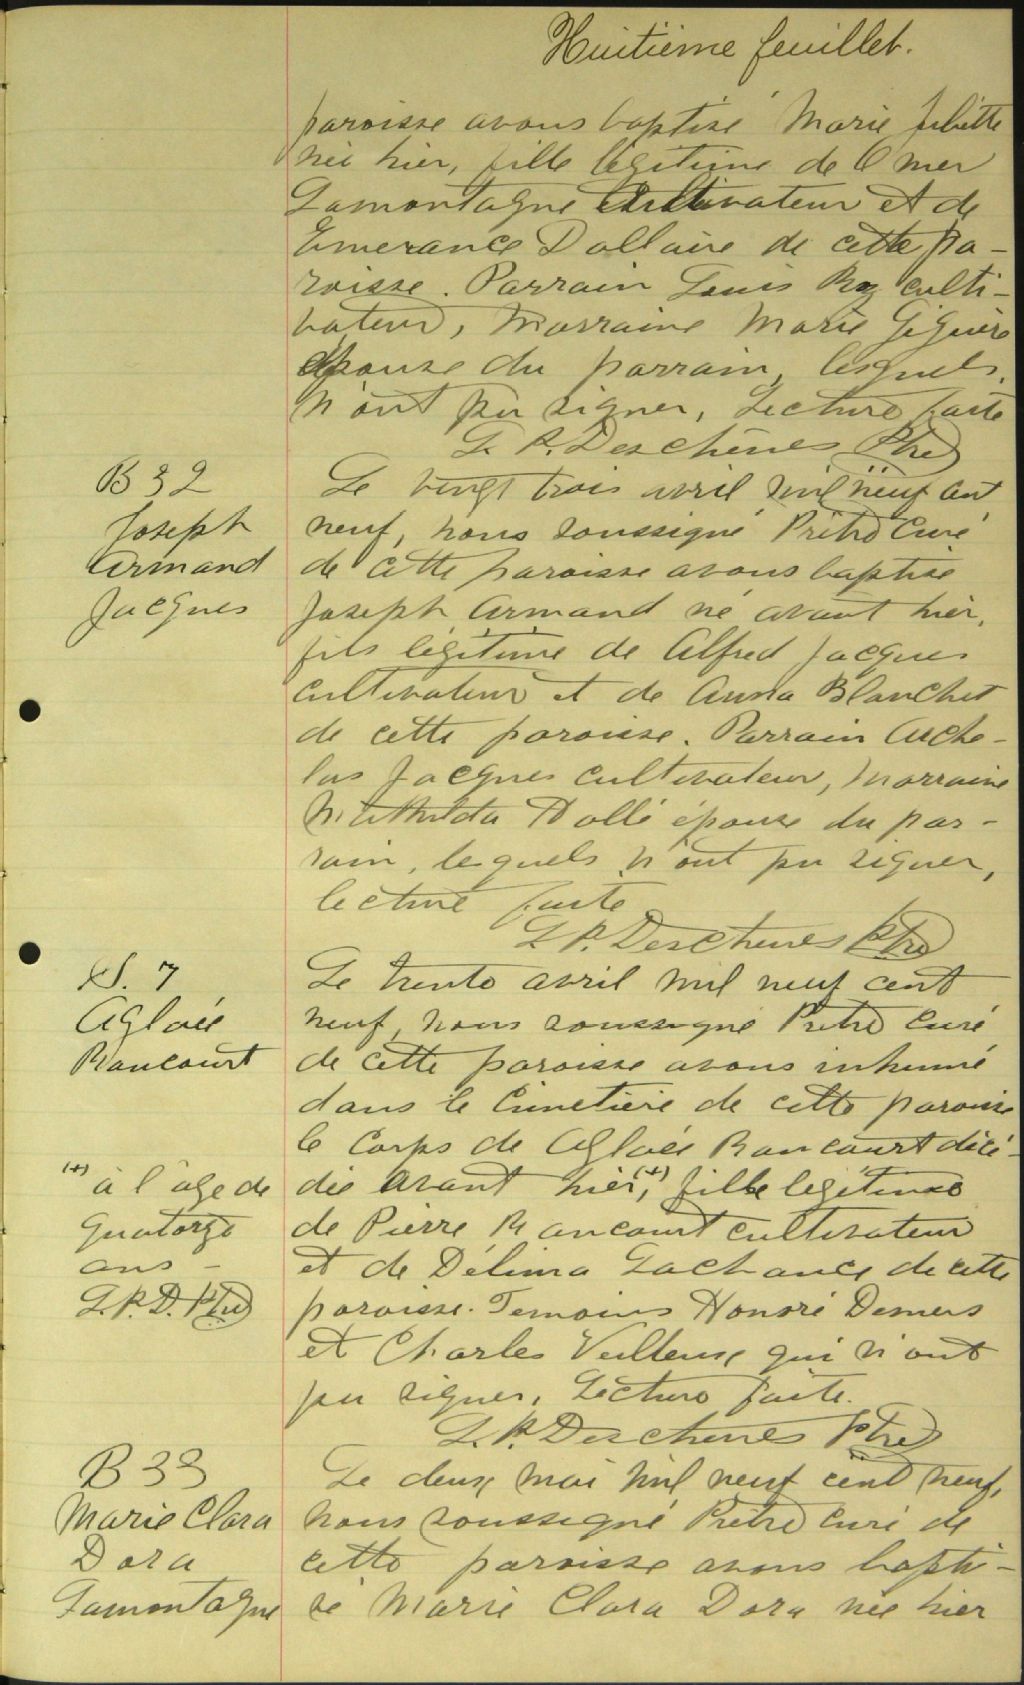 Huitième feuillet.
paroisse avons baptisé Marie Juliette
née hier, fille légitime de Omer
Lamontagne cultivateur et de
Emerance Dallaire de cette pa-
roisse. Parrain Louis Roy culti-
vateur, Marraine Marie Giguère
épouse du parrain, lesquels
n'ont pu signer, Lecture faite
L. P. Deschênes Ptre
B 32
Joseph
Armand
Jacques
Le vingt trois avril mil neuf cent
neuf, nous soussigné Prêtre Curé
de cette paroisse avons baptisé
Joseph Armand né avant hier,
fils légitime de Alfred Jacques
cultivateur et de Anna Blanchet
de cette paroisse. Parrain Arche-
las Jacques cultivateur, Marraine
Mathilda Hallé épouse du par-
rain, lesquels n'ont pu signer,
lecture faite
L. P. Deschenes Ptre
S. 7
Aglaée
Rancourt
Le trente avril mil neuf cent
neuf, nous soussigné Prêtre Curé
de cette paroisse avons inhumé
dans le Cimetière de cette paroisse
le Corps de Aglaée Rancourt décé-
dée avant hier (+), fille légitime
de Pierre Rancourt cultivateur
et de Délima Lachance de cette
paroisse. Temoins Honoré Demers
et Charles Veilleux qui n'ont
pu signer. Lecture faite.
L. P. Deschenes Ptre
(+) à l'âge de
quatorze
ans -
L. P. D. Ptre
B 33
Marie Clara
Dora
Lamontagne
Le deux mai mil neuf cent neuf,
nous soussigné Prêtre Curé de
cette paroisse avons bapti-
sé Marie Clara Dora née hier